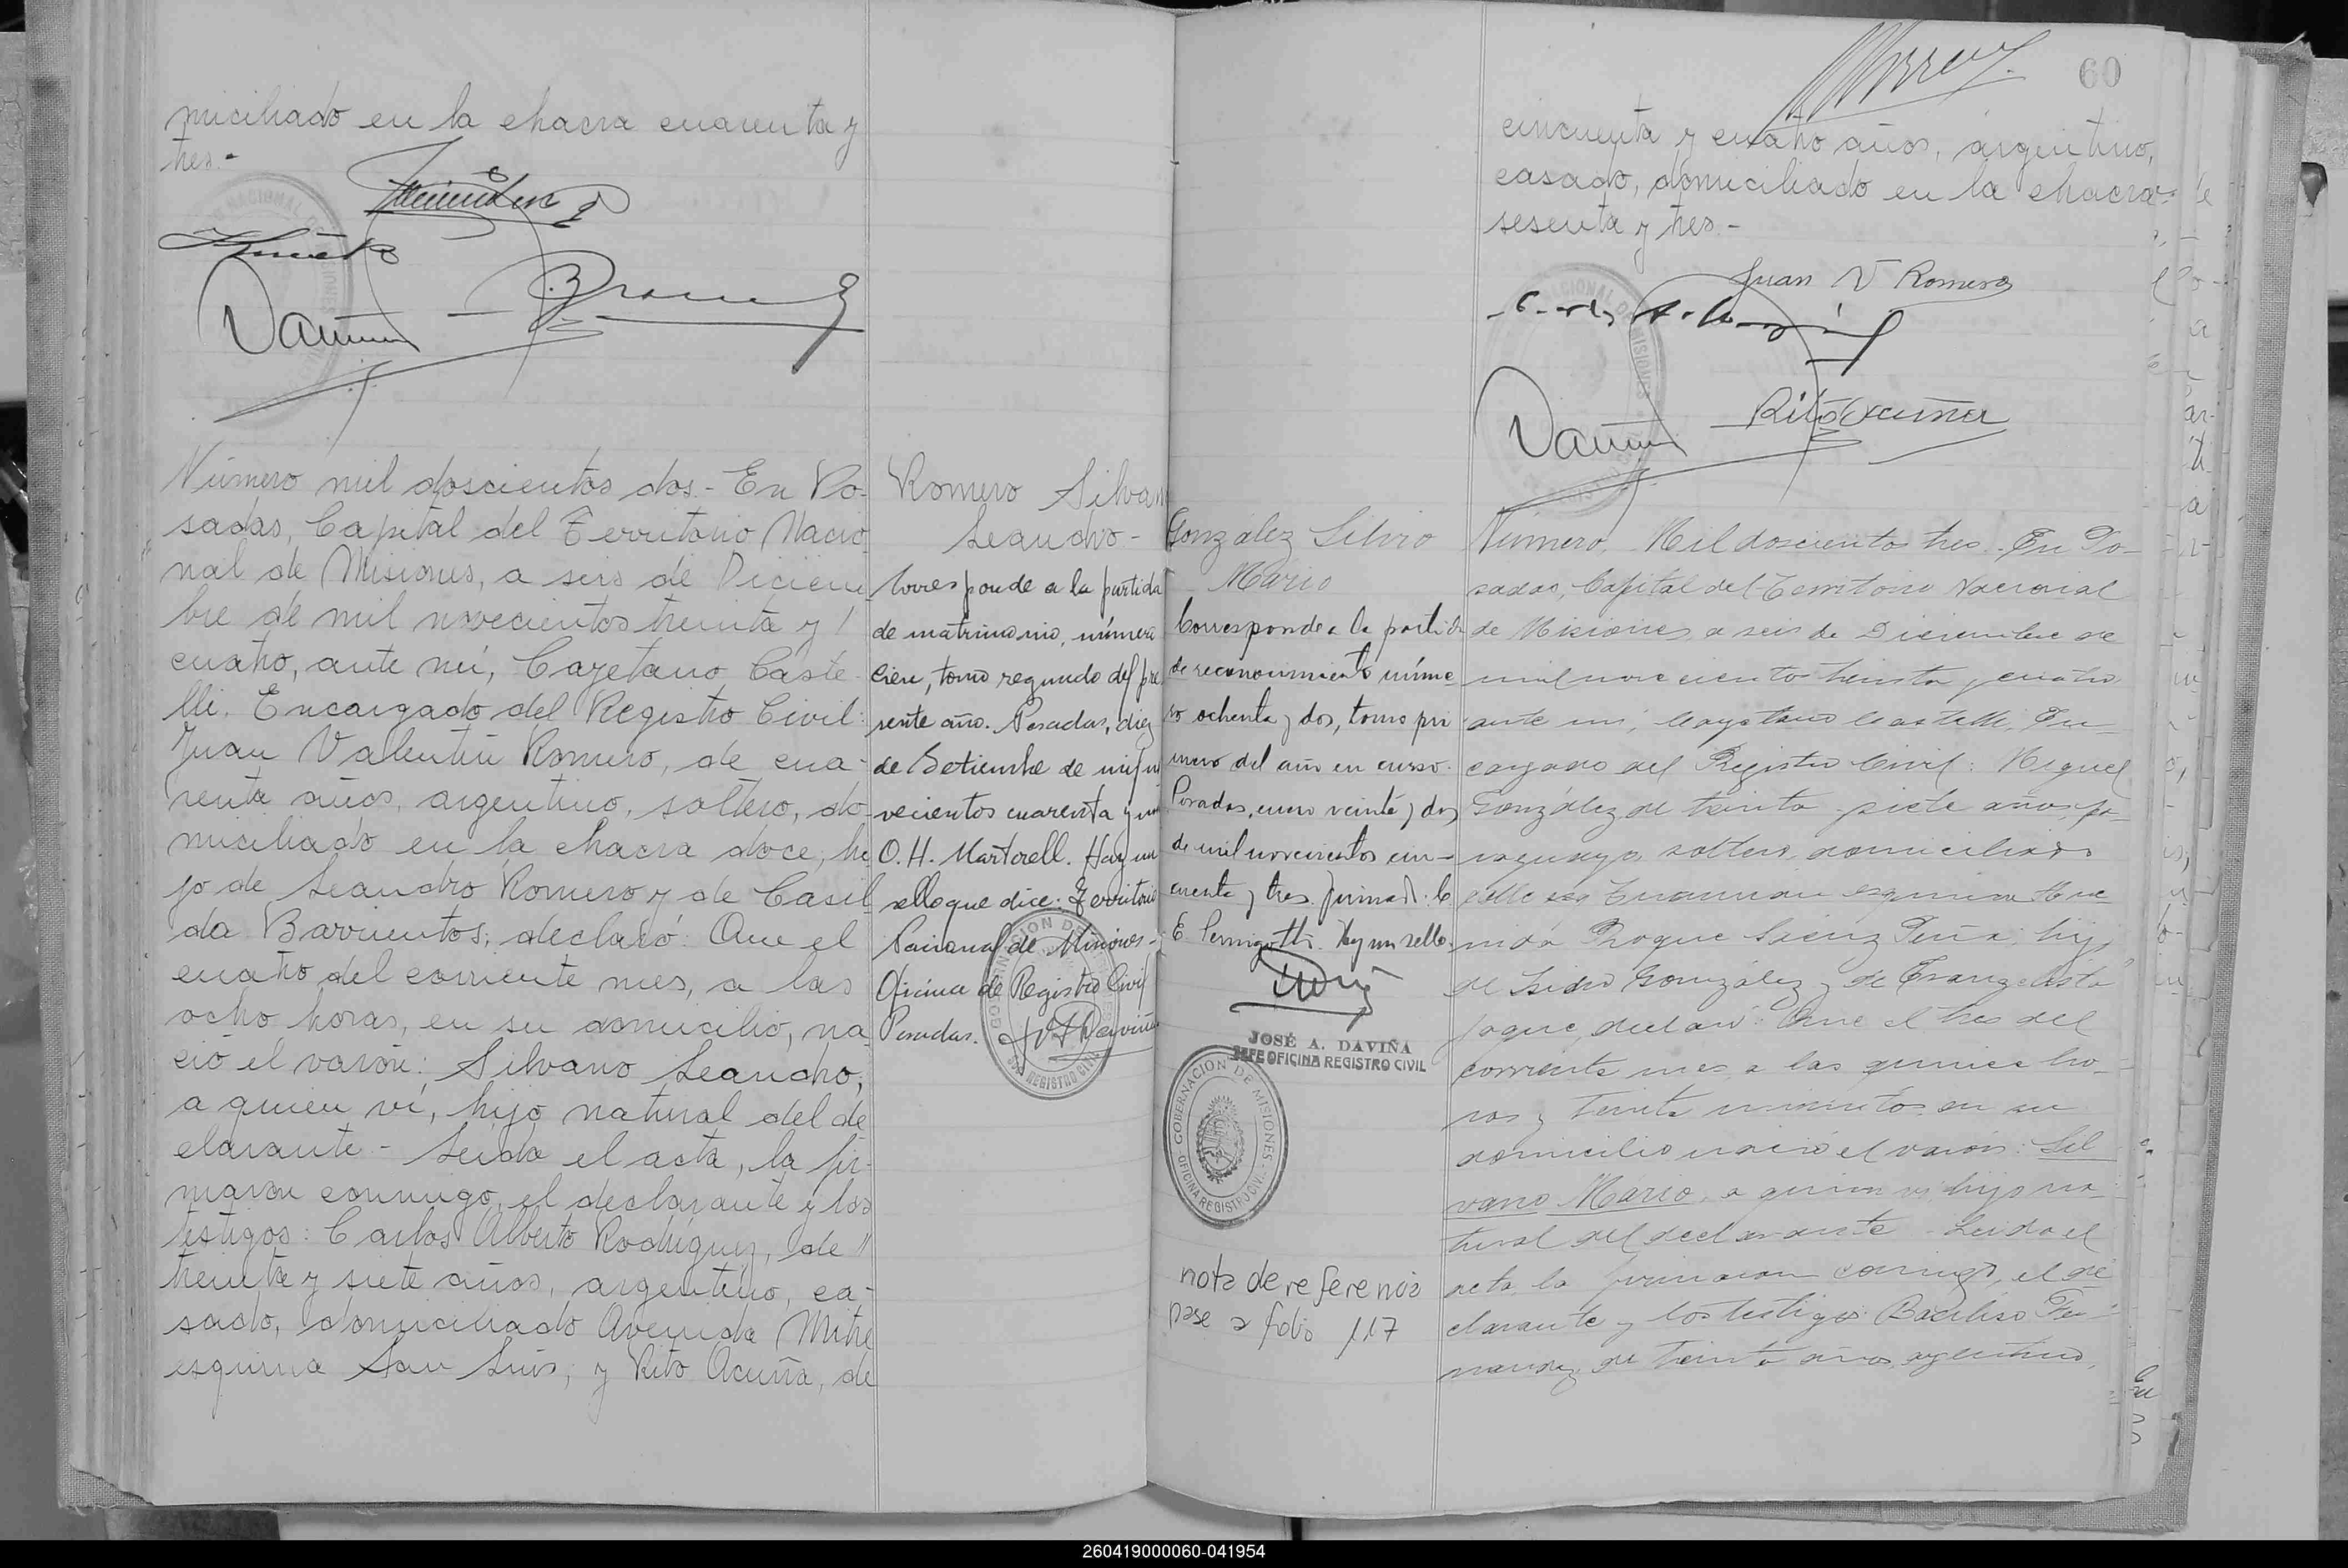 miciliado en la chacra cuarenta y
tres.-
Número mil doscientos dos.- En Po-
sadas, Capital del Territorio Nacio
nal de Misiones, a seis de Diciem
bre de mil novecientos treinta y
cuatro, ante mí, Cayetano Caste-
lli, Encargado del Registro Civil:
Juan Valentín Romero, de cua-
renta años, argentino, soltero, do-
miciliado en la chacra doce, hi
jo de Leandro Romero y de Casil
da Barrientos; declaró: Que el
cuatro del corriente mes, a las
ocho horas, en su domicilio, na-
ció el varón: Silvano Leandro,
a quien ví, hijo natural del de
clarante.- Leida el acta, la fir-
maron conmigo, el declarante y los
testigos: Carlos Alberto Rodriguez, de
treinta y siete años, argentino, ca-
sado, domiciliado Avenida Mitre
esquina San Luis; y Rito Acuña, de
Romero Silvano
Leandro-
Corresponde a la partida
de matrimonio, número
cien, tomo segundo del pre
sente año. Posadas, diez
de Setiembre de mil no
vecientos cuarenta y uno
O. H. Martorell. Hay un
sello que dice: Territorio
Nacional de Misiones-
Oficina de Registro Civil
Posadas.
60
cincuenta y cuatro años, argentino,
casado, domiciliado en la chacra
sesenta y tres.-
Juan V Romero
Rito Acuña
González Silvio
Mario
Corresponde a la partida
de reconocimiento núme-
ro ochenta y dos, tomo pri
mero del año en curso.
Posadas, enero veinte y dos
de mil novecientos cin-
cuenta y tres. firmado: C
E. Pernigotti. Hay un sello.
JOSÉ A. DAVIÑA
JEFE OFICINA REGISTRO CIVIL
GOBERNACION DE MISIONES
OFICINA REGISTRO CIVIL
nota de referencia
pase a folio 117
Número Mil doscientos tres.- En Po-
sadas, Capital del Territorio Nacional
de Misiones, a seis de Diciembre de
mil novecientos treinta y cuatro
ante mí, Cayetano Castelli, En-
cargado del Registro Civil: Miguel
González de treinta y siete años, pa-
raguayo, soltero, domiciliado
calle Tucumán esquina Ave
nida Roque Sáenz Peña, hijo
de Isidro González y de Evangelista
Joque, declaró: Que el tres del
corriente mes a las quince ho-
ras y treinta minutos en su
domicilio nació el varón: Sil
vano Mario, a quien ví, hijo na-
tural del declarante.- Leida el
acta la firmaron conmigo, el de
clarante y los testigos: Basiliso Fer-
nandez, de treinta años, argentino,
260419000060-041954